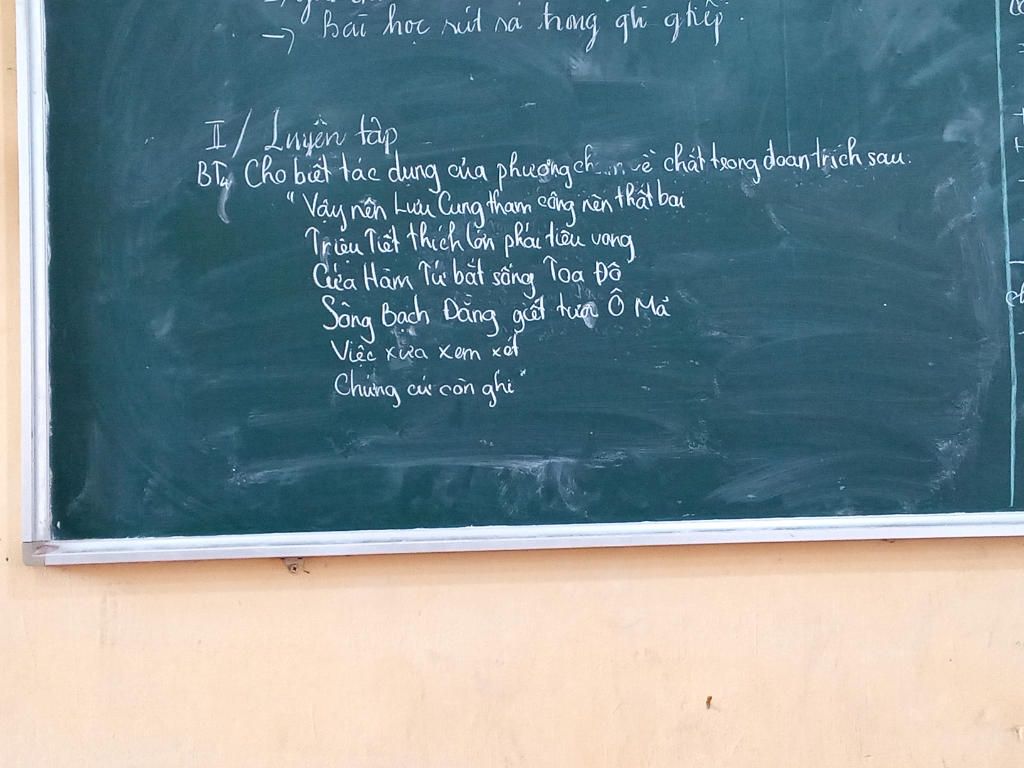 → Bài học rút ra trong ghi ghiếp.
II/ Luyện tập
BT4 Cho biết tác dụng của phương ch.. về chất trong đoạn trích sau:
"Vậy nên Lưu Cung tham công nên thất bại
Triệu Tiết thích lớn phải tiêu vong
Cửa Hàm Tử bắt sống Toa Đô
Sông Bạch Đằng giết tươi Ô Mã
Việc xưa xem xét
Chứng cứ còn ghi"